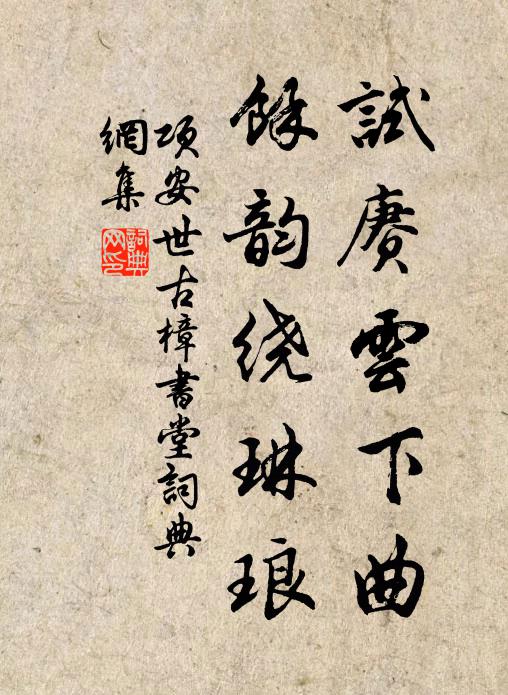 試赓雲下曲
餘韵绕琳琅
项安世古樟書堂詞典
網集
詞典
网印